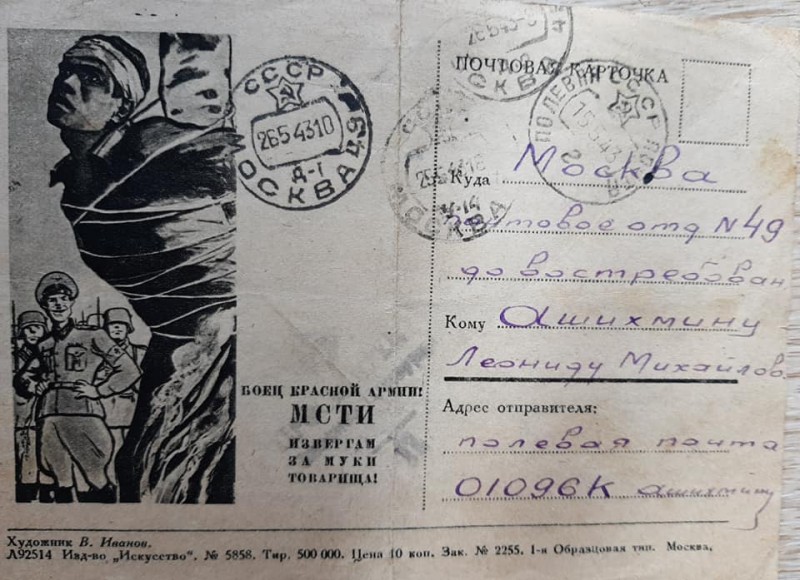 ПОЧТОВАЯ КАРТОЧКА
СССР
2654310
Д-1
МОСКВА 49
26543
МОСКВА
СССР
МОСКВА
ПОЛЕВАЯ СССР
Куда Москва
почтовое отд N 49
до востребован
Кому Ашихмину
Леониду Михайлов.
Адрес отправителя:
полевая почта
01096К Ашихмину
БОЕЦ КРАСНОЙ АРМИИ!
МСТИ
ИЗВЕРГАМ
ЗА МУКИ
ТОВАРИЩА!
Художник В. Иванов.
Л92514 Изд-во „Искусство“. № 5858. Тир. 500 000. Цена 10 коп. Зак. № 2255. 1-я Образцовая тип. Москва.